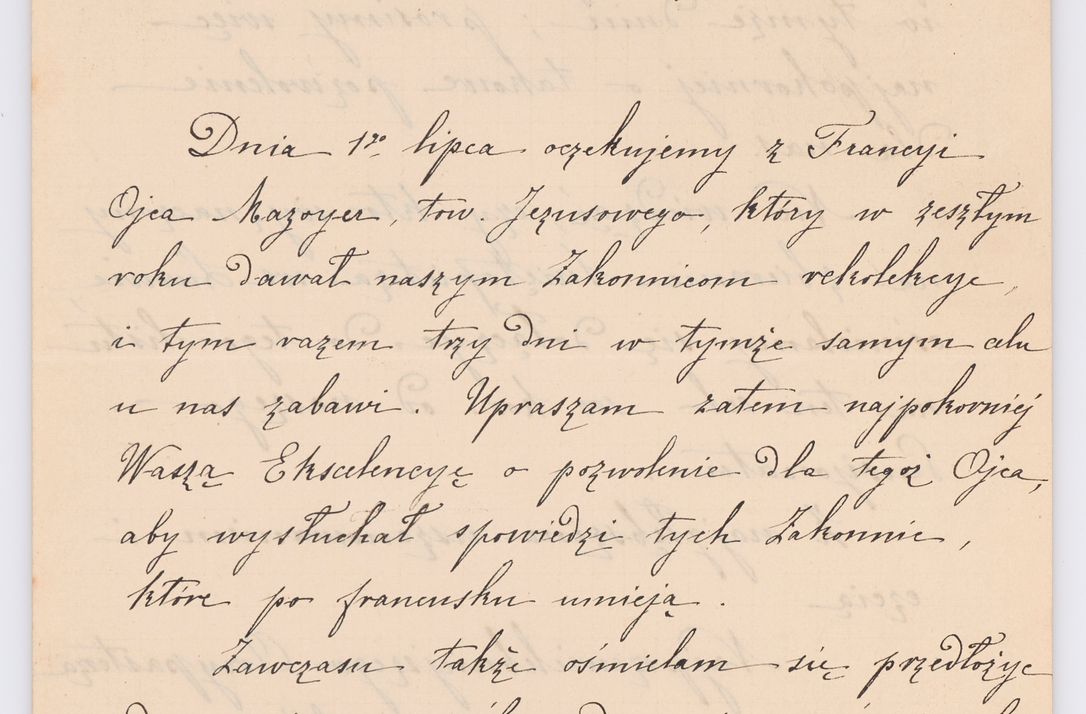 Dnia 1go lipca oczekujemy z Francyi
Ojca Mazoyer, tow. Jezusowego, który w zeszłym
roku dawał naszym Zakonnicom rekolekcye,
i tym razem trzy dni w tymże samym celu
u nas zabawi. Upraszam zatem najpokorniej
Waszą Ekscelencyę o pozwolenie dla tegoż Ojca,
aby wysłuchał spowiedzi tych Zakonnic,
które po francusku umieją.
Zawczasu także ośmielam się przedłożyć